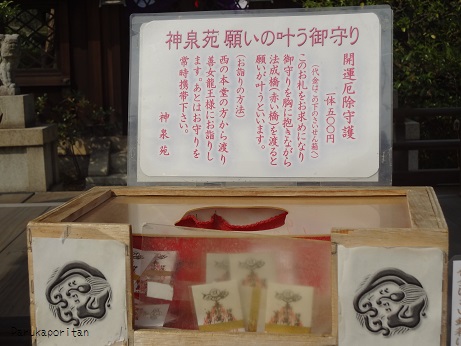 神泉苑 願いの叶う御守り
開運厄除守護
一体 五〇〇円
(代金は、この下のさいせん箱へ)
このお札をお求めになり
御守りを胸に抱きながら
法成橋(赤い橋)を渡ると
願いが叶うといいます。
(お詣りの方法)
西の本堂の方から渡り
善女龍王様にお詣りし
ます。あとはお守りを
常時携帯下さい。
神泉苑